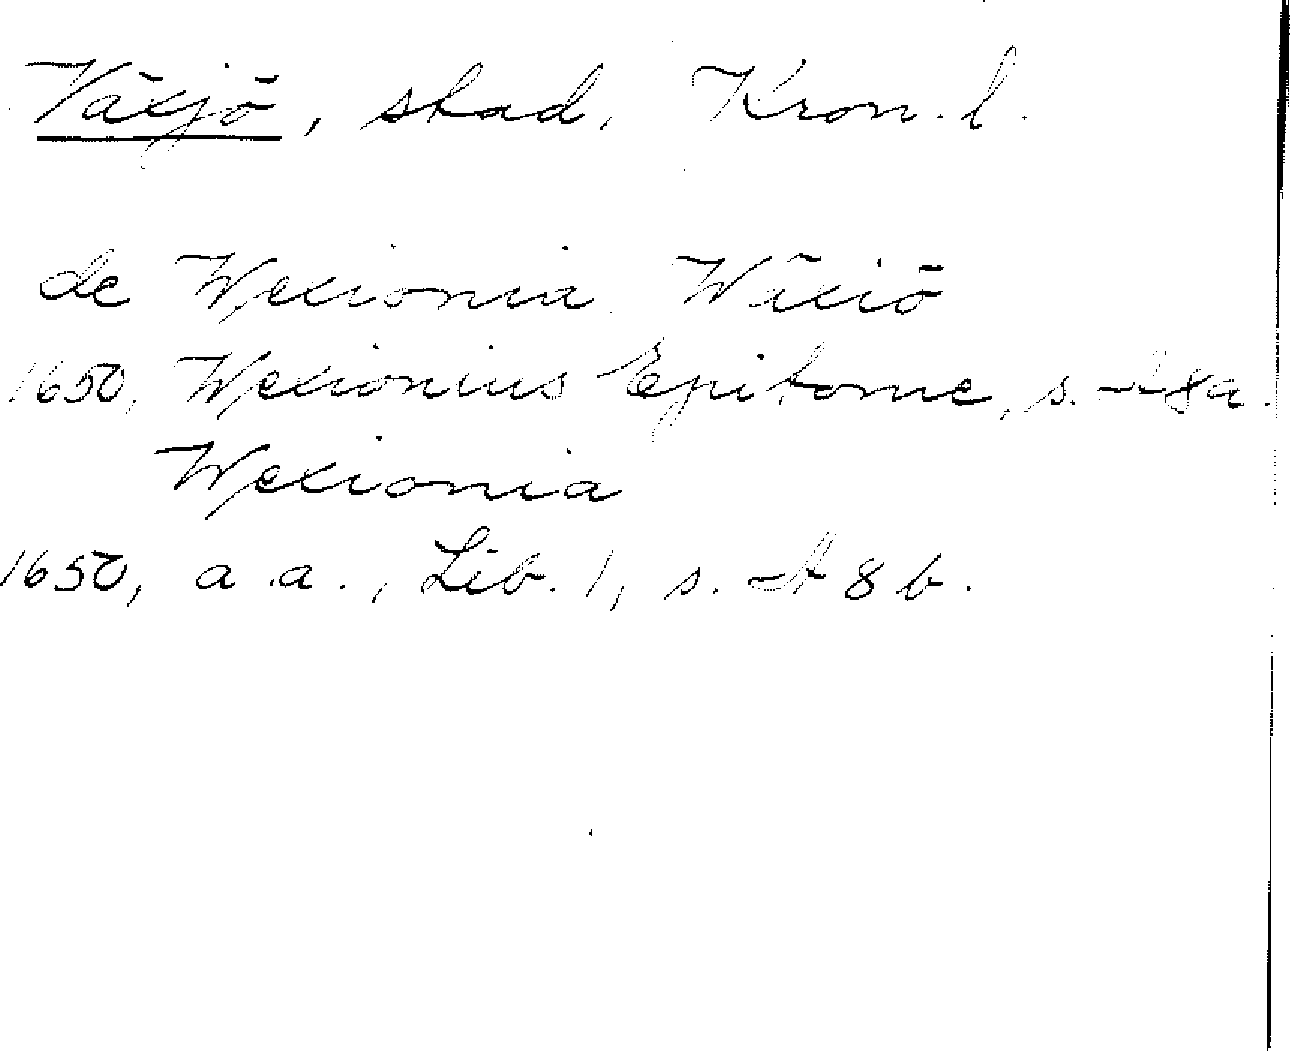 Växjö, stad, Kron. l.
de Wexionia Wäxiö
1650, Wexionius Epitome, s. A 8 a.
Wexionia
1650, a. a., Lib. 1, s. A 8 b.